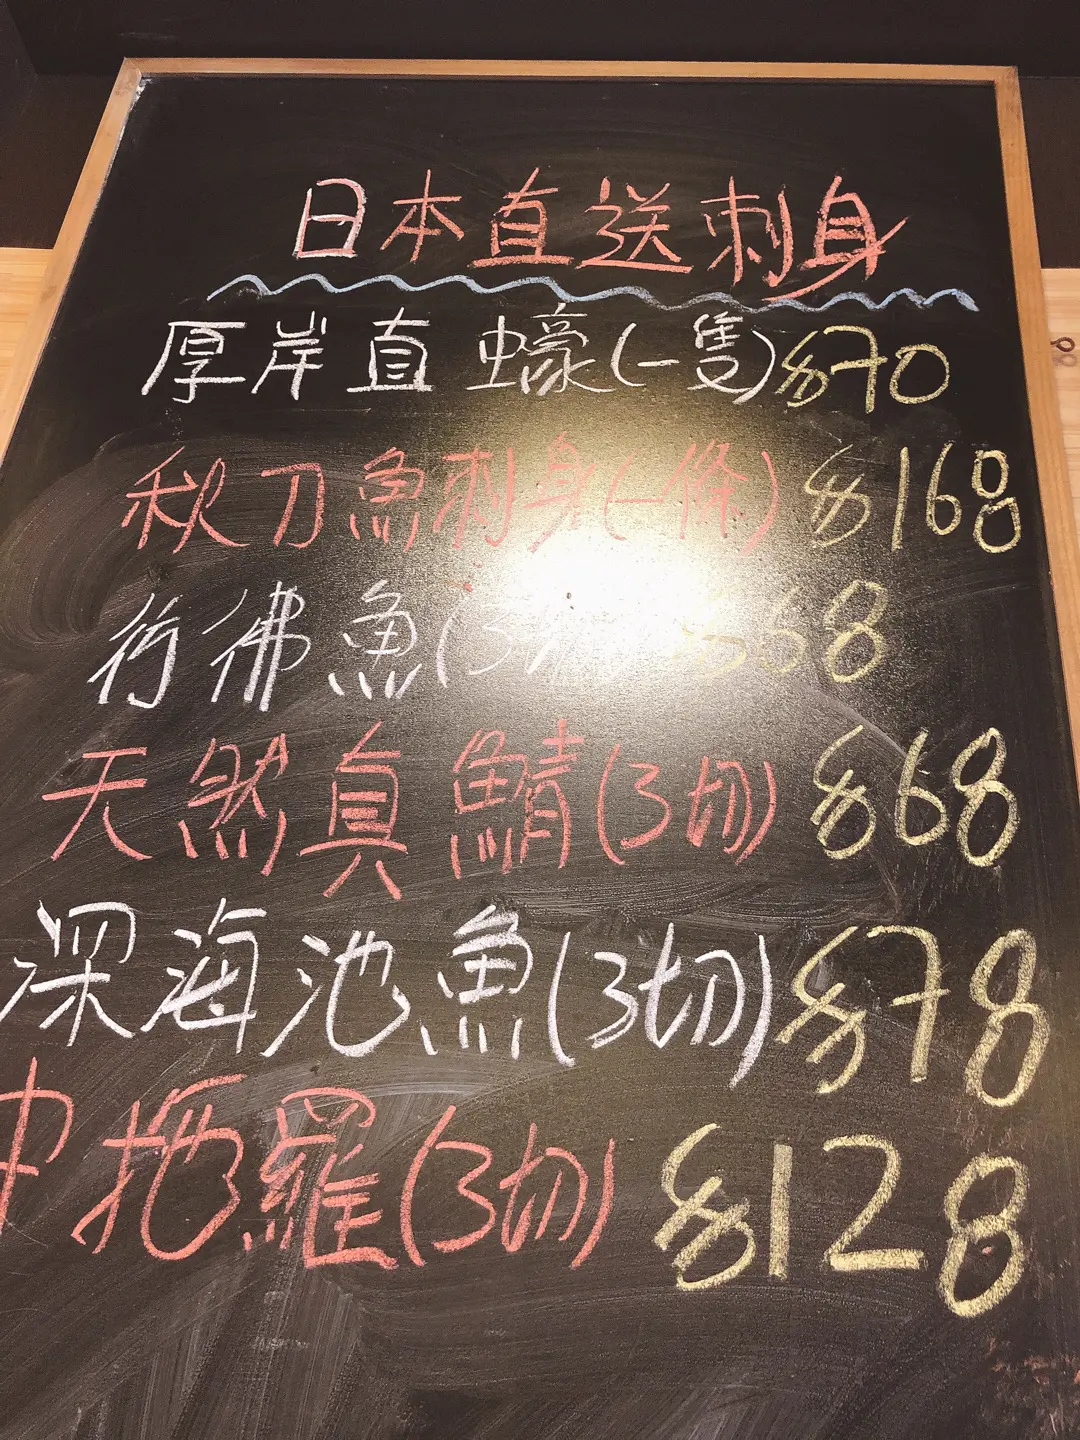 日本直送刺身
厚岸直蠔(一隻)$70
秋刀魚刺身(一條)$168
彷彿魚(3切)$68
天然真鯖(3切)$68
深海池魚(3切)$78
中拖羅(3切)$128